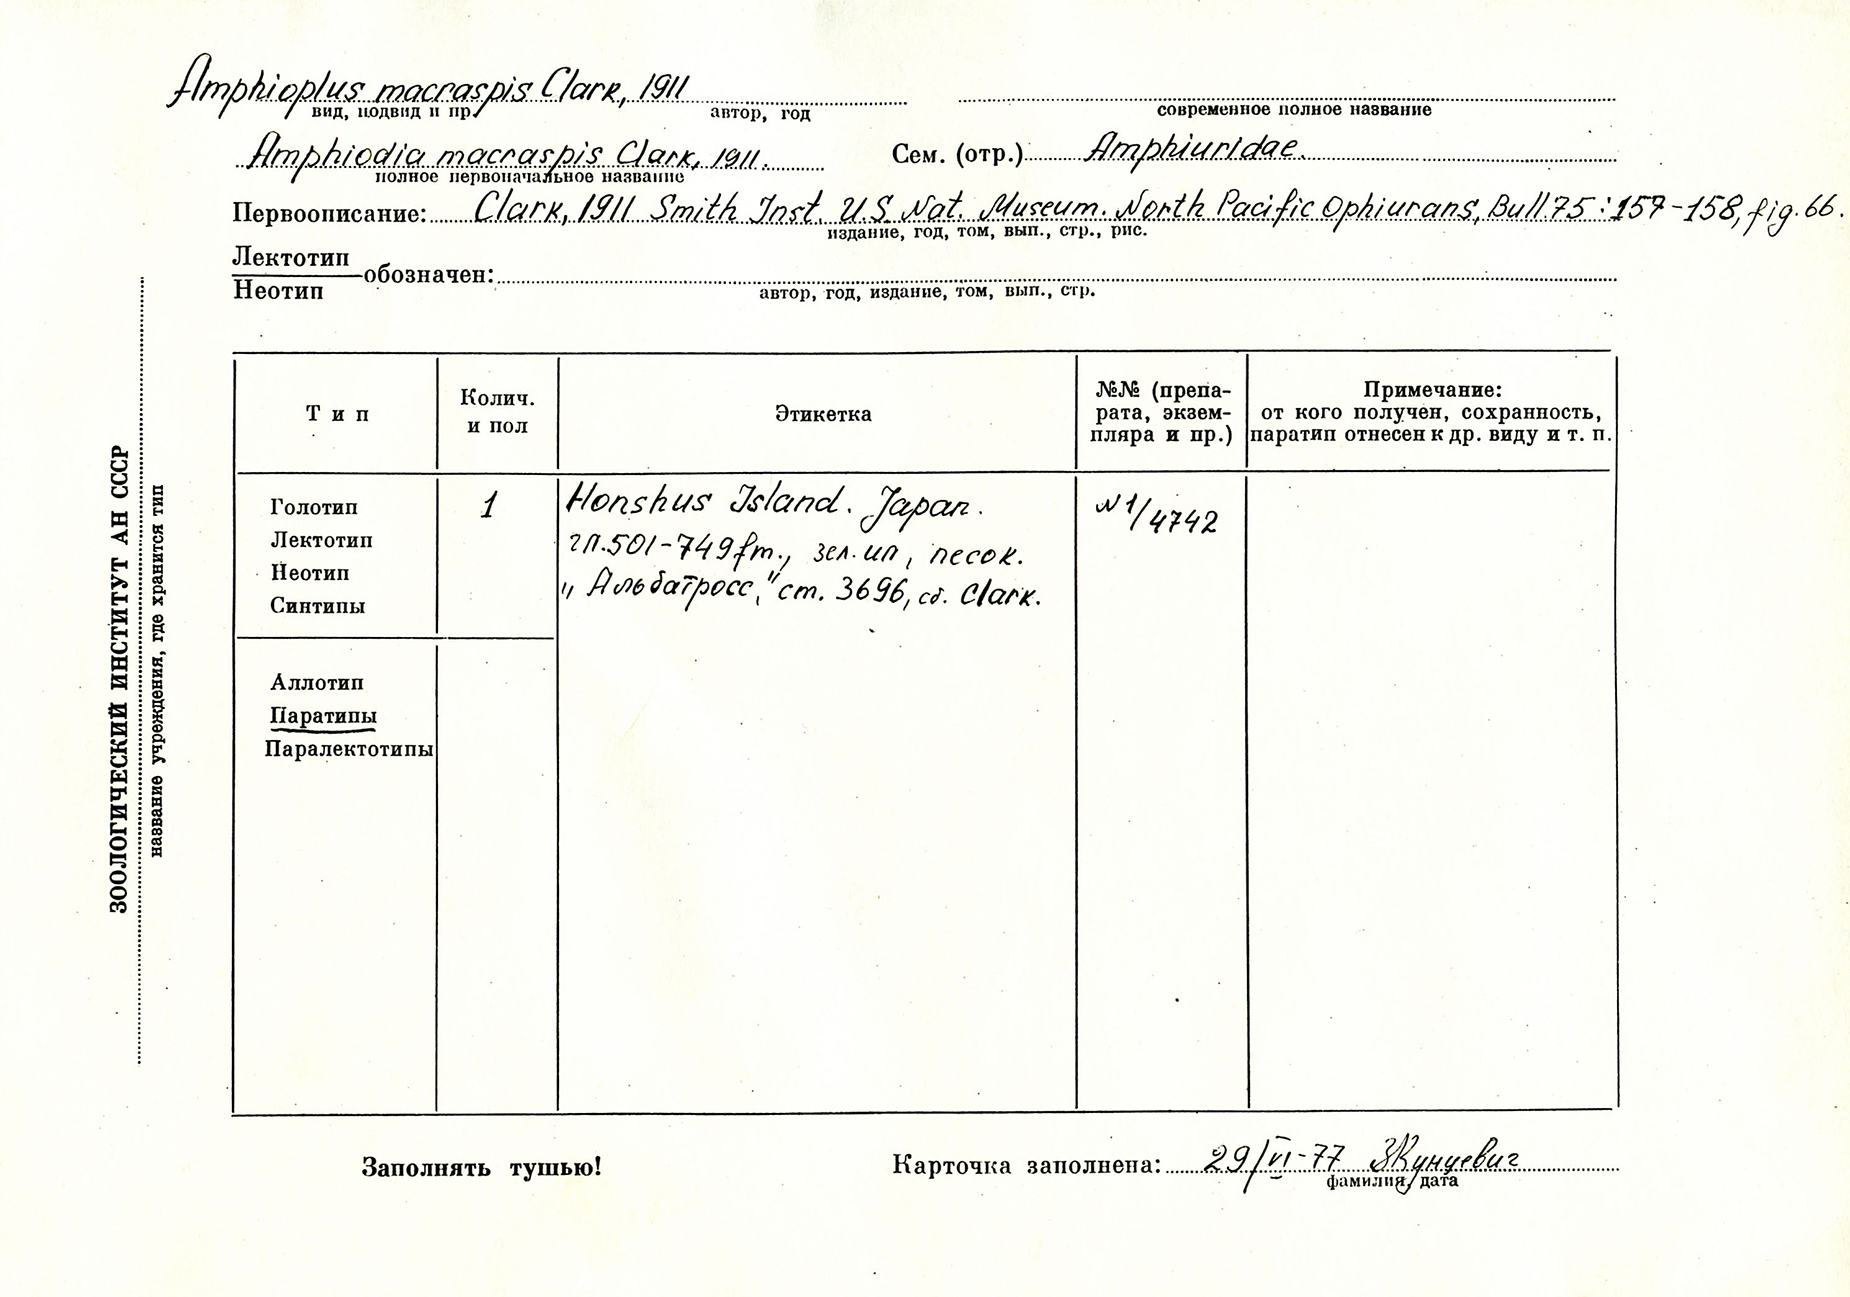 Amphioplus macraspis Clark, 1911
вид, подвид и пр. автор, год
современное полное название
Amphiodia macraspis Clark, 1911.
полное первоначальное название
Сем. (отр.) Amphiuridae.
Первоописание: Clark, 1911 Smith Inst. U.S. Nat. Museum. North Pacific Ophiurans, Bull. 75: 157-158, fig. 66.
издание, год, том, вып., стр., рис.
Лектотип
Неотип
обозначен:
автор, год, издание, том, вып., стр.
ЗООЛОГИЧЕСКИЙ ИНСТИТУТ АН СССР
название учреждения, где хранится тип
Тип
Колич. и пол
Этикетка
№№ (препа-
рата, экзем-
пляра и пр.)
Примечание:
от кого получен, сохранность,
паратип отнесен к др. виду и т. п.
Голотип
Лектотип
Неотип
Синтипы
1
Honshus Island. Japan.
гл. 501-749 fm., зел. ил, песок.
"Альбатросс," ст. 3696, сб. Clark.
N 1/4742
Аллотип
Паратипы
Паралектотипы
Заполнять тушью!
Карточка заполнена: 29/VI-77 ЗКунцевич
фамилия, дата